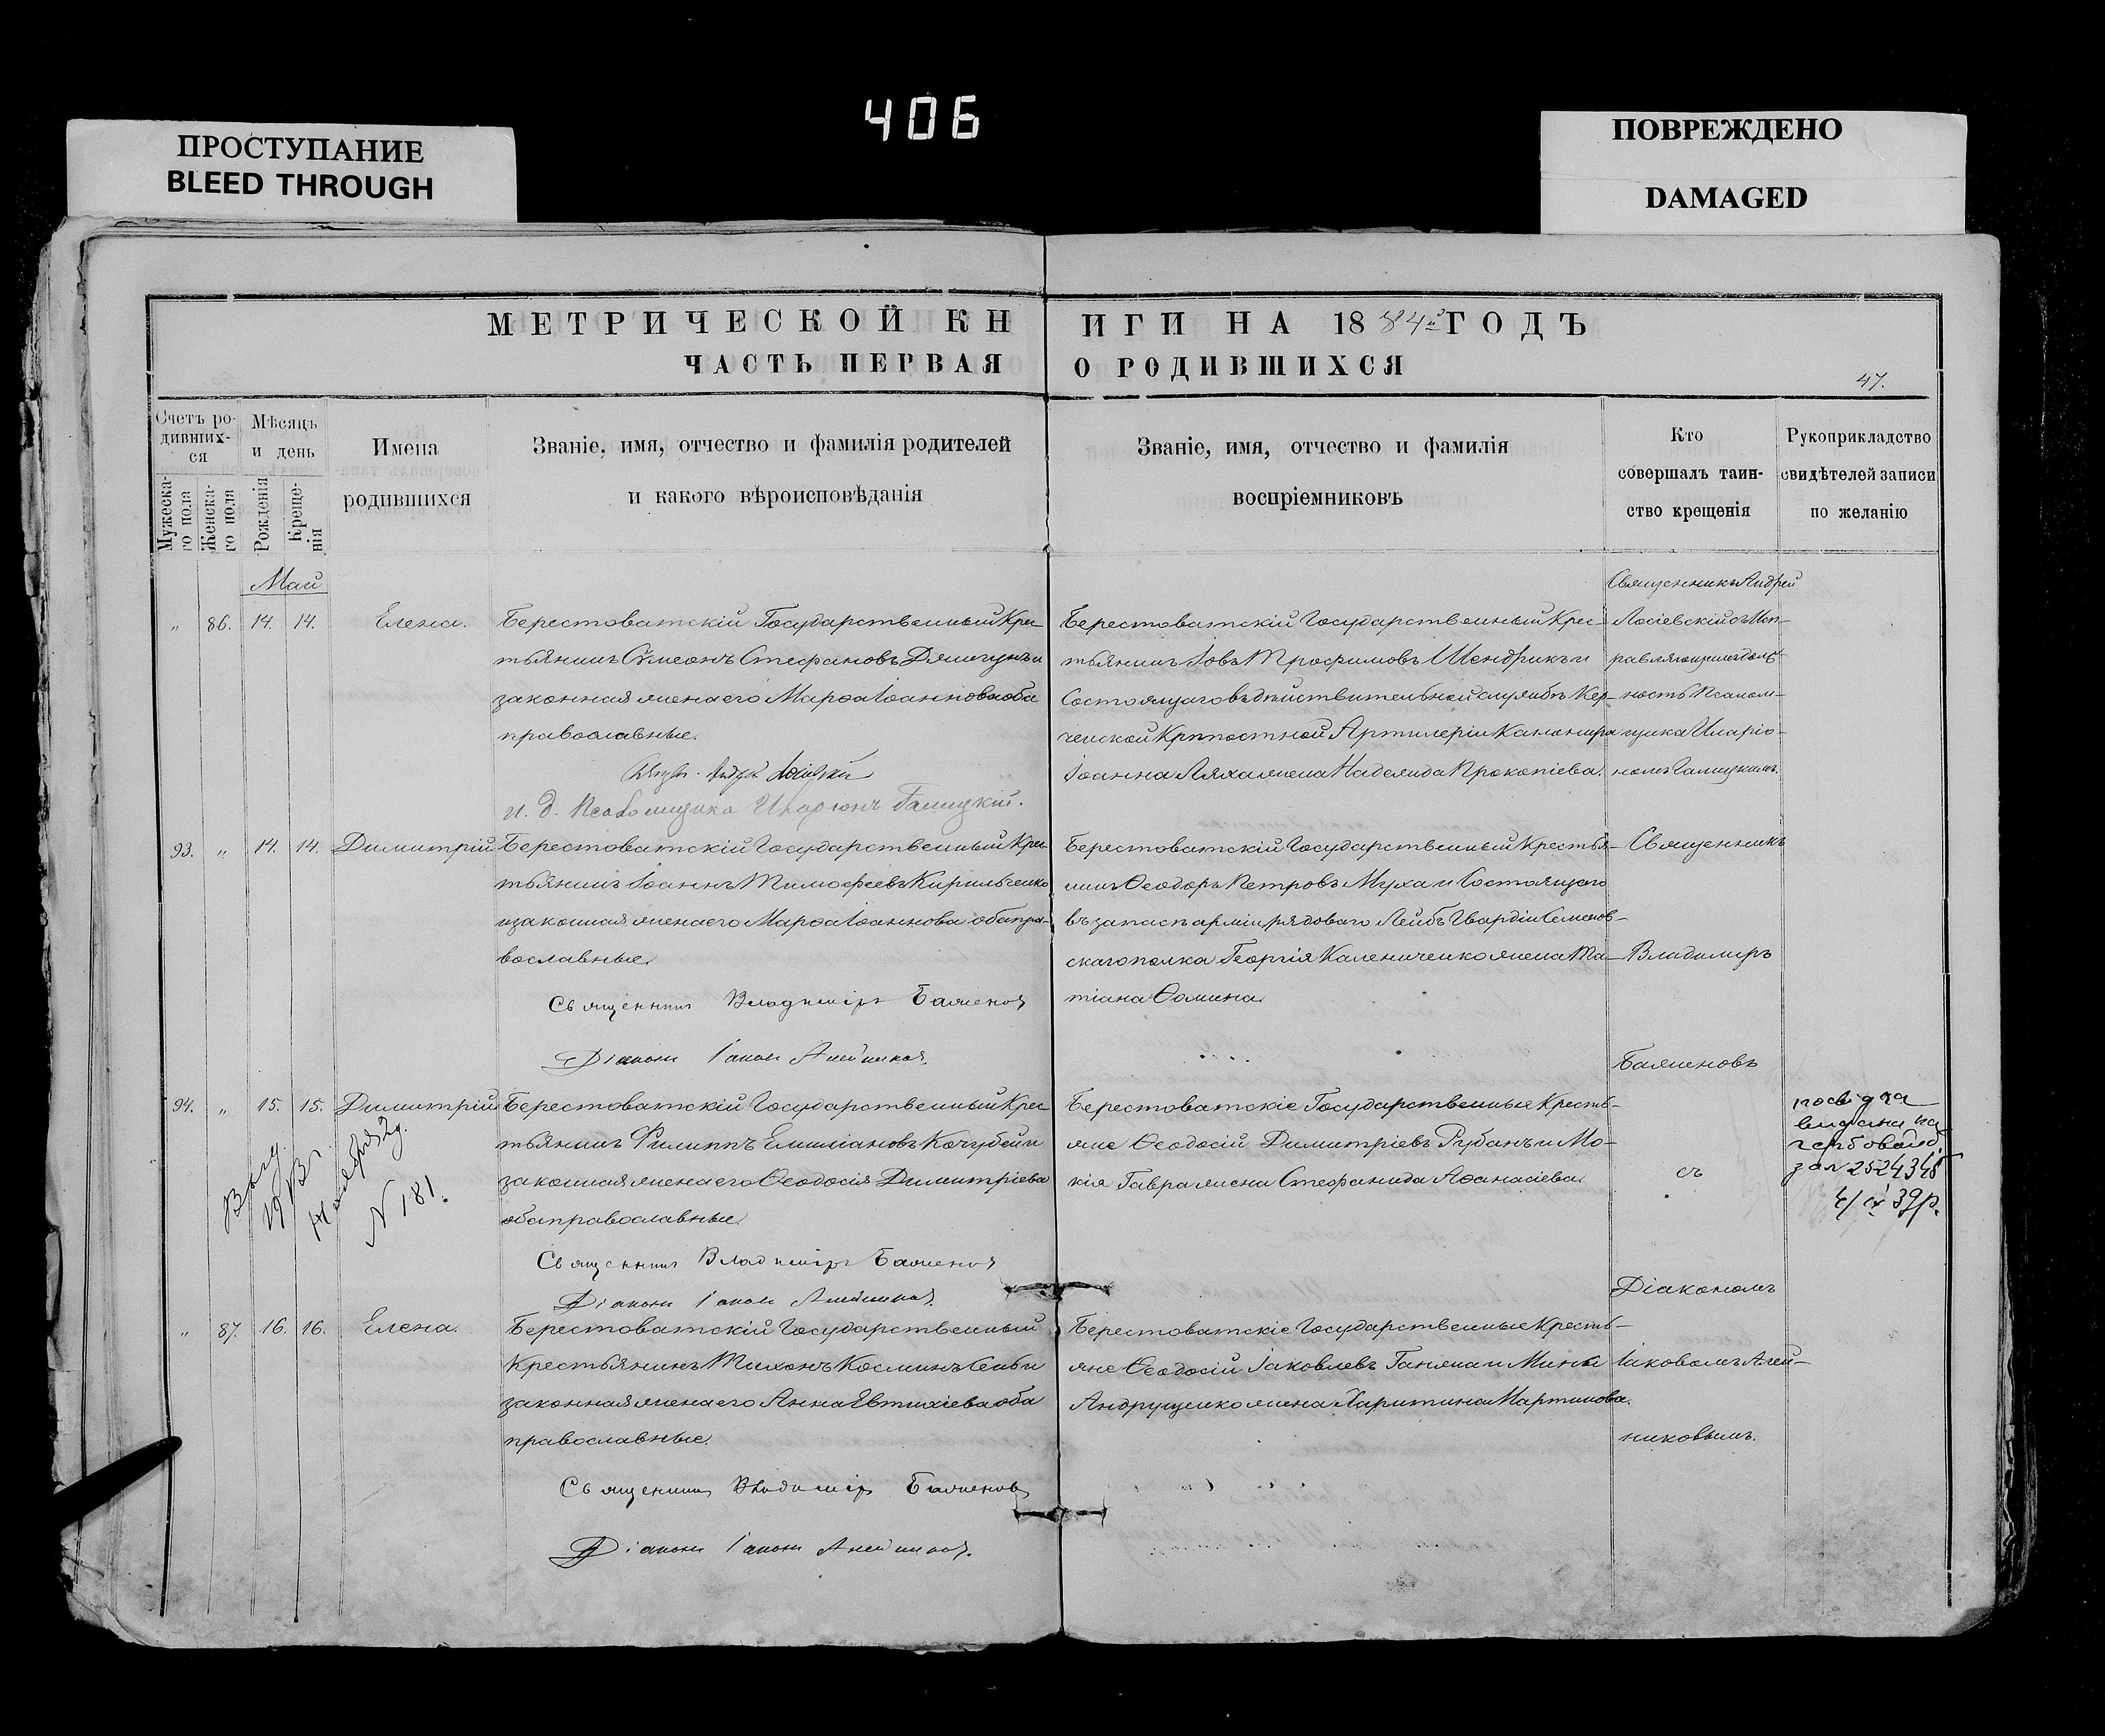 406
ПРОСТУПАНИЕ
BLEED THROUGH
ПОВРЕЖДЕНО
DAMAGED
МЕТРИЧЕСКОЙ КНИГИ НА 1884й ГОДЪ
ЧАСТЬ ПЕРВАЯ О РОДИВШИХСЯ
47.
Счетъ ро-
дивших-
ся
Мужеска-
го пола
Женска-
го пола
Мѣсяцъ
и день
Рожденія
Креще-
нія
Имена
родившихся
Званіе, имя, отчество и фамилія родителей
и какого вѣроисповѣданія
Званіе, имя, отчество и фамилія
воспріемниковъ
Кто
совершалъ таин-
ство крещенія
Рукоприкладство
свидѣтелей записи
по желанію
Май
„ 86. 14. 14. Елена.
Берестоватскій Государственный Крес-
тьянинъ Сѵмеонъ Стефановъ и
законная жена его Марѳа Іоаннова оба
православные.
Свящ. Андрей Лосіевскій
и. д. Псаломщика Иларіонъ Галицкій.
Берестоватскій Государственный Крес-
тьянинъ Іовъ Трофимовъ Шендрикъ и
Состоящаго въ дѣйствительной службѣ Кер-
ченской Крѣпостной Артилеріи Канонира
Іоанна Ляха жена Надежда Прокопіева.
Священникъ Андрей
Лосіевскій съ Исп-
равляющимъ долж-
ность Псалом-
щика Иларіо-
номъ Галицкимъ.
93. „ 14. 14. Димитрій
Берестоватскій Государственный Крес-
тьянинъ Іоаннъ Тимофеевъ Кирильченко
и законная жена его Марѳа Іоаннова оба пра-
вославные.
Священникъ Владиміръ Баженовъ
Діаконъ Іаковъ Алейниковъ.
Берестоватскій Государственный Крестья-
нинъ Ѳеодоръ Петровъ Муха и Состоящаго
въ запасѣ арміи рядоваго Лейбъ Гвардіи Семенов-
скаго полка Георгія Калениченко жена Та-
тіана Ѳомина.
Священникъ
Владимиръ
Баженовъ
94. „ 15. 15. Димитрій
Берестоватскій Государственный Крес-
тьянинъ Филиппъ Емиліановъ Кочубей и
законная жена его Ѳеодосія Димитріева
оба православные.
Священникъ Владиміръ Баженовъ
Діаконъ Іаковъ Алейниковъ.
Берестоватскіе Государственные Кресть-
яне Ѳеодосій Димитріевъ Рубанъ и Мо-
кія Гавра жена Стефанида Аѳанасіева.
съ
посвідка
видана на
гербовало
зап 2524348
39р.
Ноября 2д.
N 181.
„ 87. 16. 16. Елена.
Берестоватскій Государственный
Крестьянинъ Тихонъ Косминъ и
законная жена его Анна Евтихіева оба
православные.
Священникъ Владиміръ Баженовъ
Діаконъ Іаковъ Алейниковъ.
Берестоватскіе Государственные Кресть-
яне Ѳеодосій Іаковлевъ Ганжа и Мины
Андрущенко жена Харитина Мартинова.
Діакономъ
Іаковомъ Алей-
никовымъ.